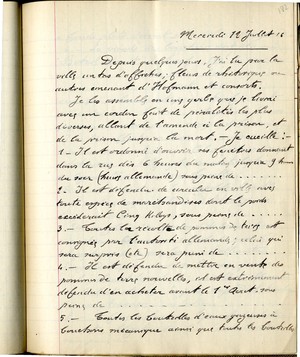 Mercredi 12 Juillet 16
Depuis quelques jours, j'ai lu par la
ville un tas d'affiches, fleurs de rhétorique ou
autres émanant d'Hofmann et consorts.
Je les assemble en une gerbe que je lierai
avec un cordon fait de pénalités les plus
diverses, allant de l'amende à la prison, et
de la prison jusqu'à la mort. — Je cueille :
1 - Il est ordonné d'ouvrir ses fenêtres donnant
dans la rue dès 6 heures du matin jusqu'à 9 heures
du soir (heure allemande) sous peine de
2 - Il est défendu de circuler en ville avec
toute espèce de marchandises dont le poids
excéderait Cinq Kilogs, sous peine de
3 - Toute la récolte de pommes de terre est
consignée par l'autorité allemande ; celui qui
sera surpris (etc) sera puni de
4 - Il est défendu de mettre en vente des
pommes de terre nouvelles, et est extrêmement
défendu d'en acheter avant le 1er Août, sous
peine de
5 - Toutes les bouteilles d'eaux gazeuses à
bouchons mécanique ainsi que toutes les bouteilles